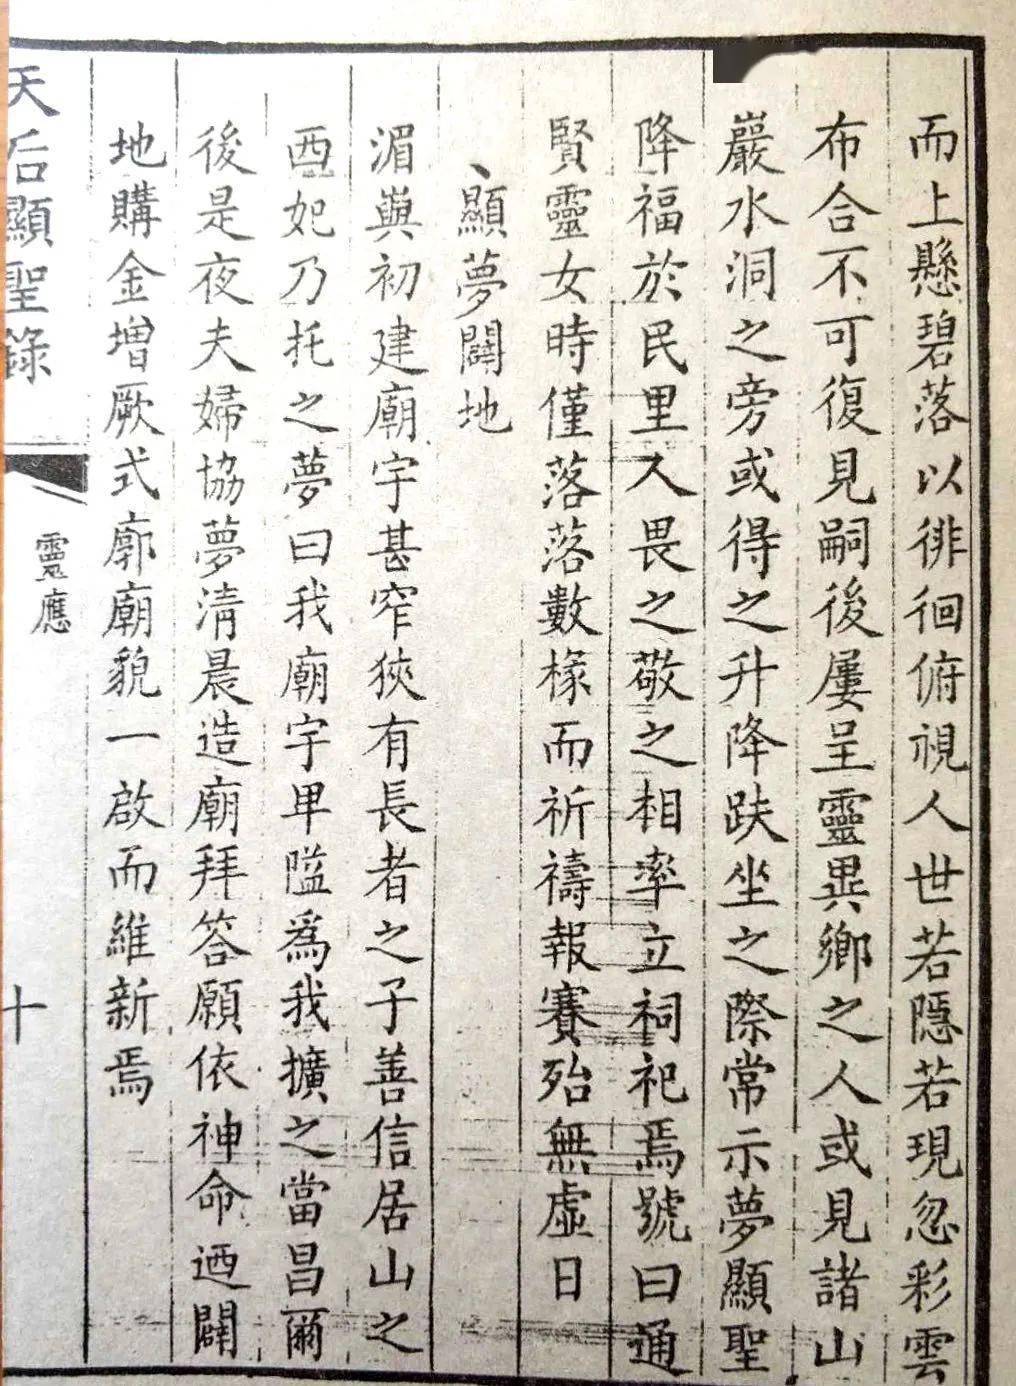 而上懸碧落以徘徊俯視人世若隱若現忽彩雲
布合不可復見嗣後屢呈靈異鄉之人或見諸山
巖水洞之旁或得之升降趺坐之際常示夢顯聖
降福於民里人畏之敬之相率立祠祀焉號曰通
賢靈女時僅落落數椽而祈禱報賽殆無虛日
、顯夢闢地
湄嶼初建廟宇甚窄狹有長者之子善信居山之
西妃乃托之夢曰我廟宇卑隘爲我擴之當昌爾
後是夜夫婦協夢清晨造廟拜答願依神命迺闢
地購金增厥式廓廟貌一啟而維新焉
天后顯聖錄
靈應
十